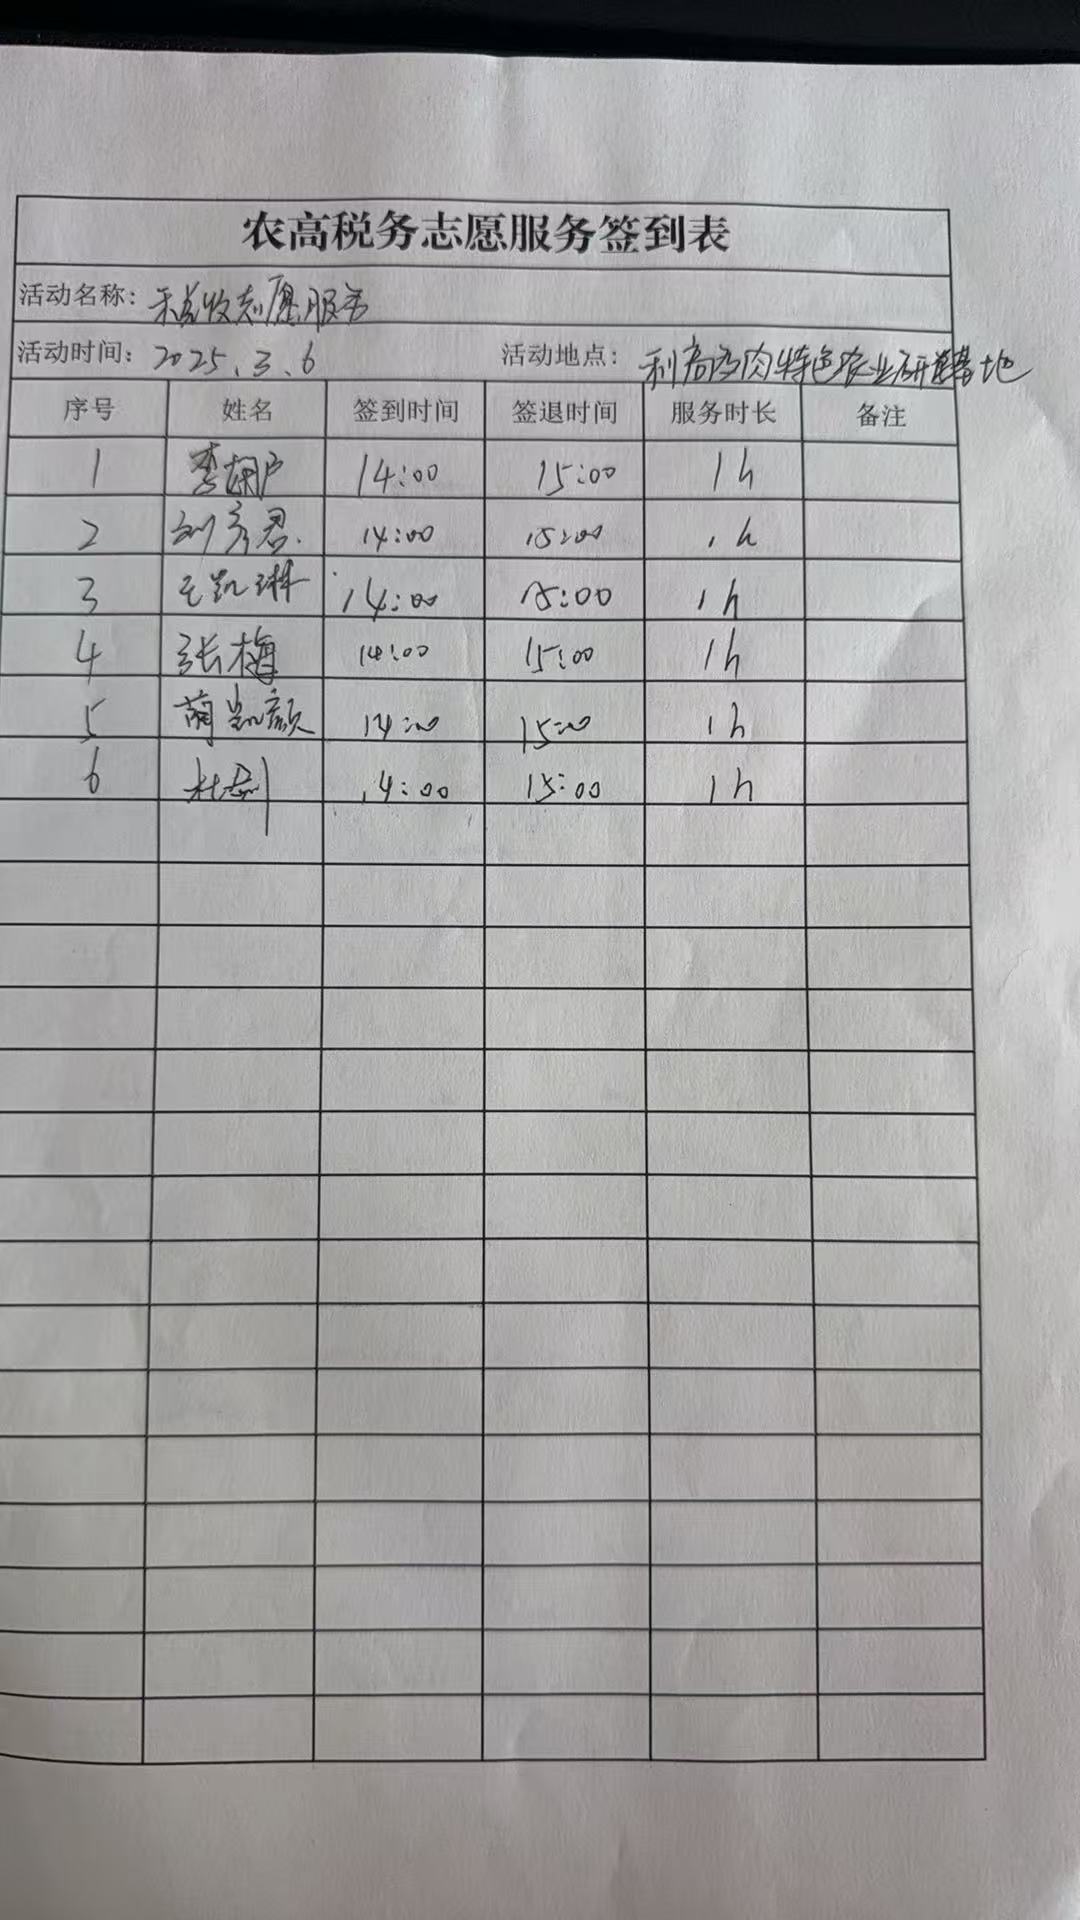 农高税务志愿服务签到表
活动名称：税收志愿服务
活动时间：2025.3.6 活动地点：利高多肉特色农业研基地
序号 姓名 签到时间 签退时间 服务时长 备注
1 李 14:00 15:00 1h
2 刘彦君 14:00 15:00 1h
3 王凯琳 14:00 15:00 1h
4 张梅 14:00 15:00 1h
5 凯颜 14:00 15:00 1h
6 杜 14:00 15:00 1h